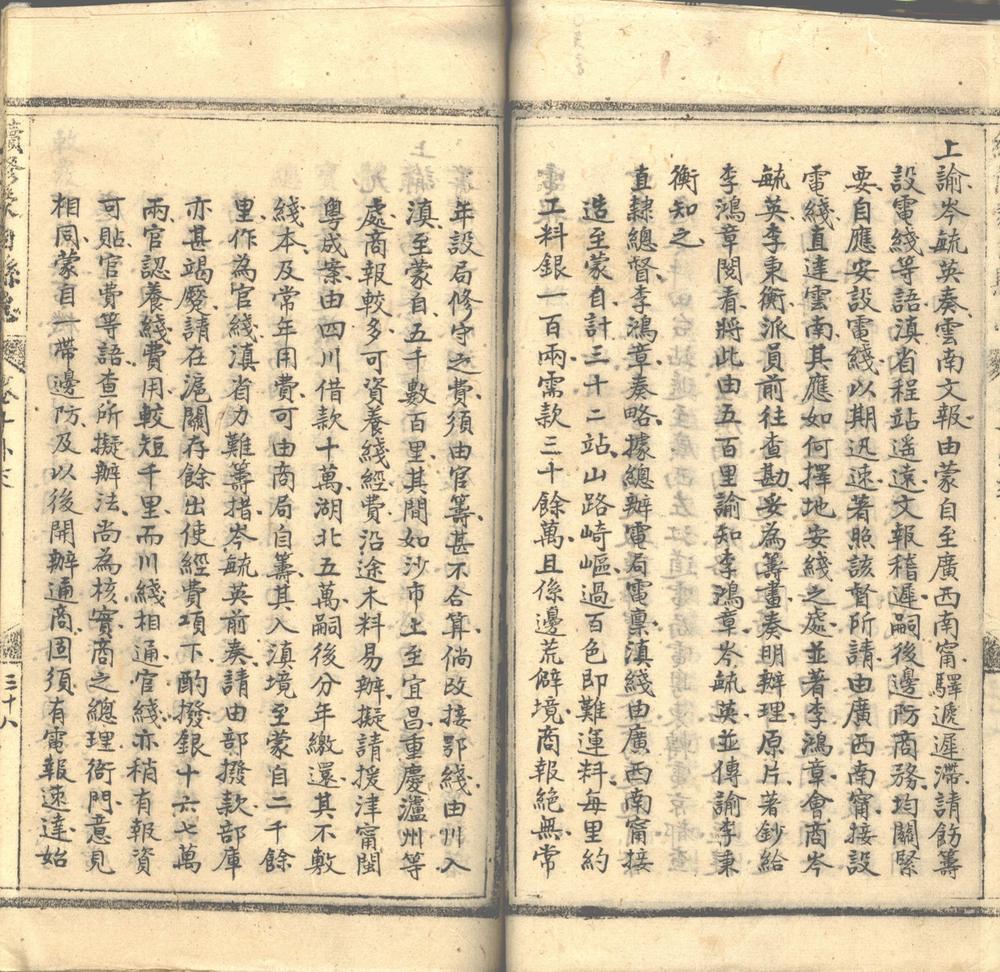 上諭岑毓英奏雲南文報由蒙自至廣西南甯驛遞遲滯請飭籌
設電綫等語滇省程站遥遠文報稽遲嗣後邊防商務均關緊
要自應安設電綫以期迅速著照該督所請由廣西南甯接設
電綫直達雲南其應如何擇地安綫之處並著李鴻章會商岑
毓英李秉衡派員前往查勘妥為籌畫奏明辦理原片著鈔給
李鴻章閱看將此由五百里諭知李鴻章岑毓英並傳諭李秉
衡知之
直隸總督李鴻章奏略據總辦電局電稟滇綫由廣西南甯接
造至蒙自計三十二站山路崎嶇過百色即難運料每里約
工料銀一百兩需款三十餘萬且係邊荒僻境商報絕無常
年設局修守之費須由官籌甚不合算倘改接鄂綫由川入
滇至蒙自五千數百里其間如沙市上至宜昌重慶瀘州等
處商報較多可資養綫經費沿途木料易辦擬請援津甯閩
粵成案由四川借款十萬湖北五萬嗣後分年繳還其不敷
綫本及常年用費可由商局自籌其入滇境至蒙自二千餘
里作為官綫滇省力難籌措岑毓英前奏請由部撥款部庫
亦甚竭蹷請在滬關存餘出使經費項下酌撥銀十六七萬
兩官認養綫費用較短千里而川綫相通官綫亦稍有報資
可貼官費等語查所擬辦法尚為核實商之總理衙門意見
相同蒙自一帶邊防及以後開辦通商固須有電報速達始
續修蒙自縣志
三十八